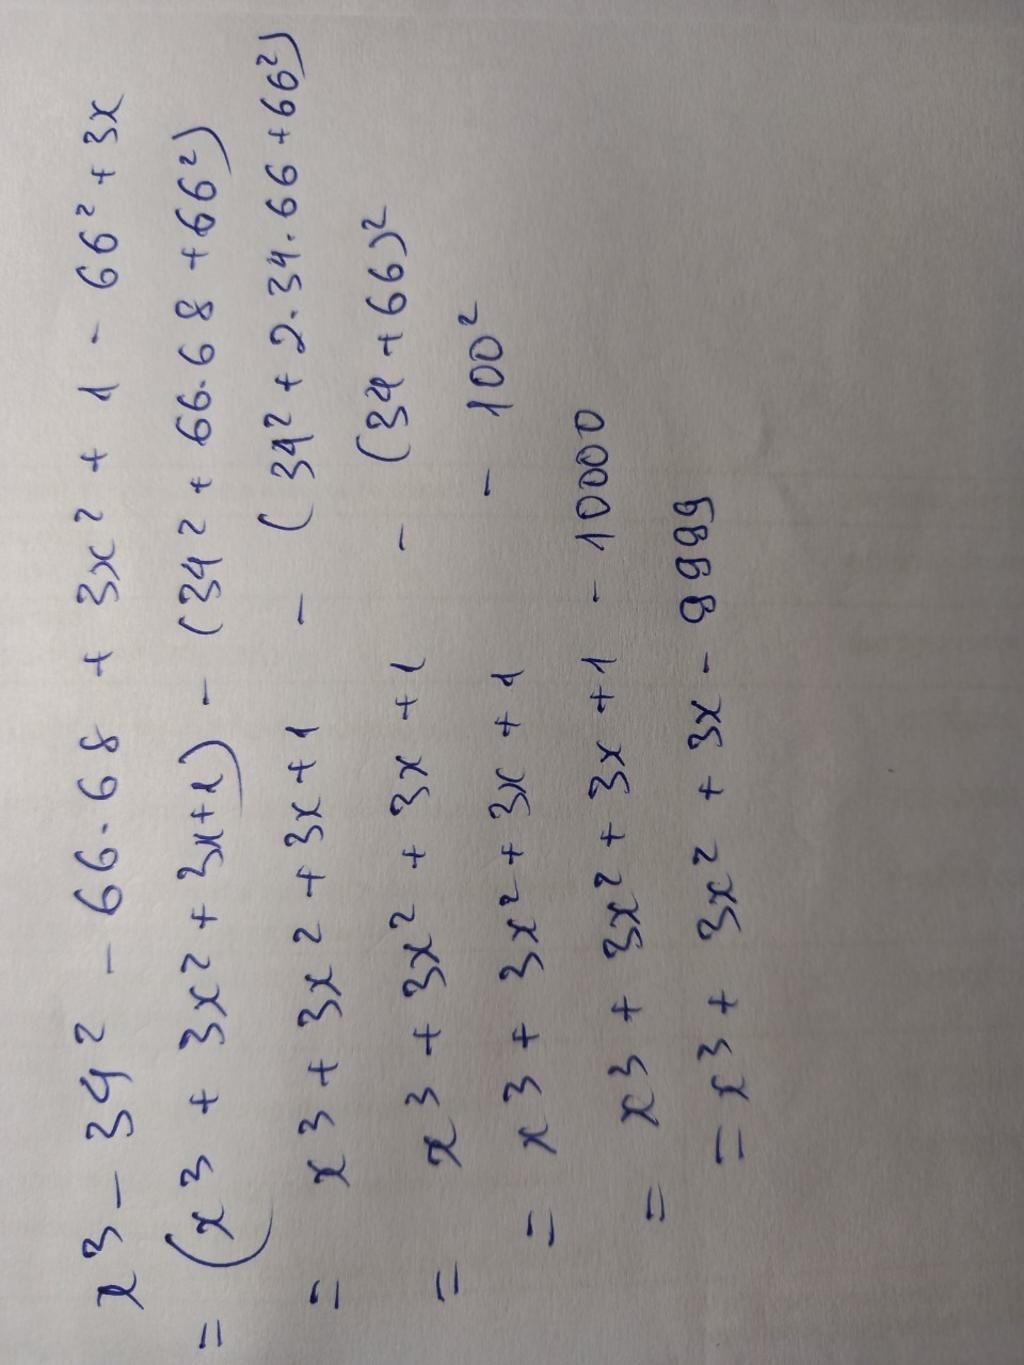 x³ - 34² - 66.68 + 3x² + 1 - 66² + 3x
= (x³ + 3x² + 3x+1) - (34² + 66.68 + 66²)
= x³ + 3x² + 3x + 1 - (34² + 2.34.66 + 66²)
= x³ + 3x² + 3x + 1 - (34 + 66)²
= x³ + 3x² + 3x + 1 - 100²
= x³ + 3x² + 3x + 1 - 10000
= x³ + 3x² + 3x - 9999